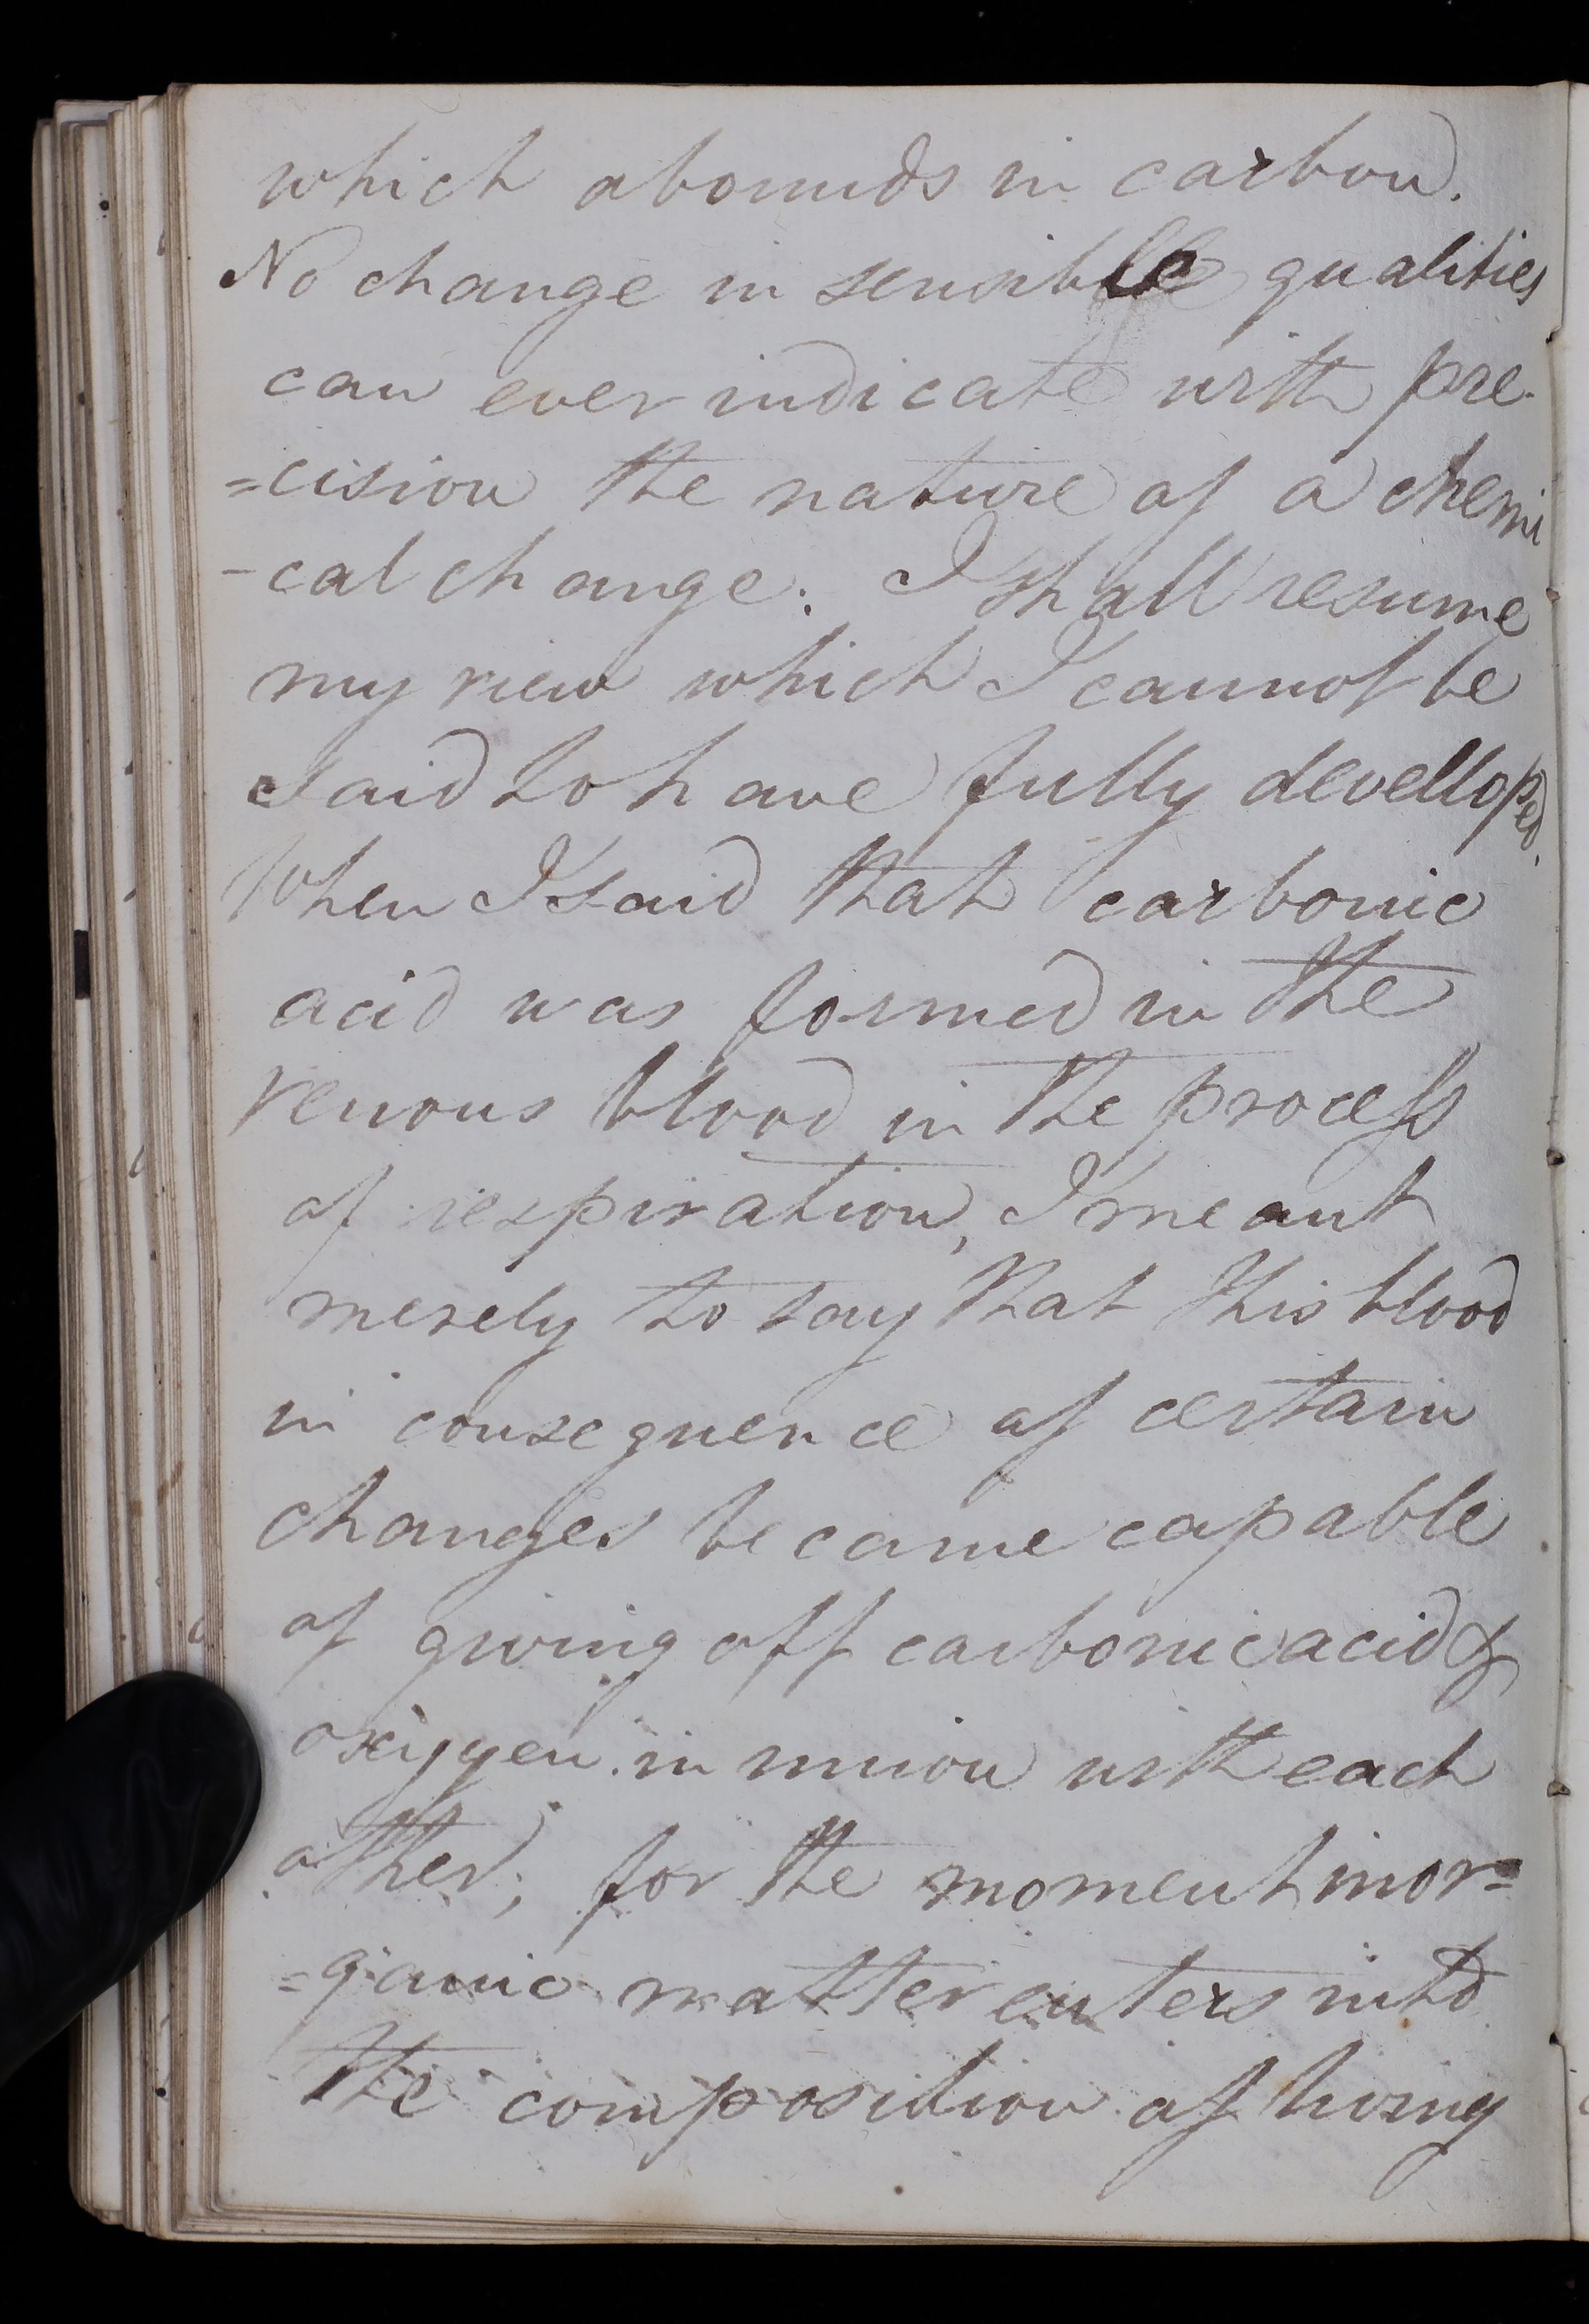 which abounds in carbon.
No change in sensible qualities
can ever indicate with pre-
=cision the nature of a chemi
-cal change. I shall resume
my view which I cannot be
said to have fully developed.
When I said that carbonic
acid was formed in the
venous blood in the process
of respiration, I meant
merely to say that this blood
in consequence of certain
changes became capable
of giving off carbonic acid &
oxygen in union with each
other; for the moment inor=
=ganic matter enters into
the composition of living